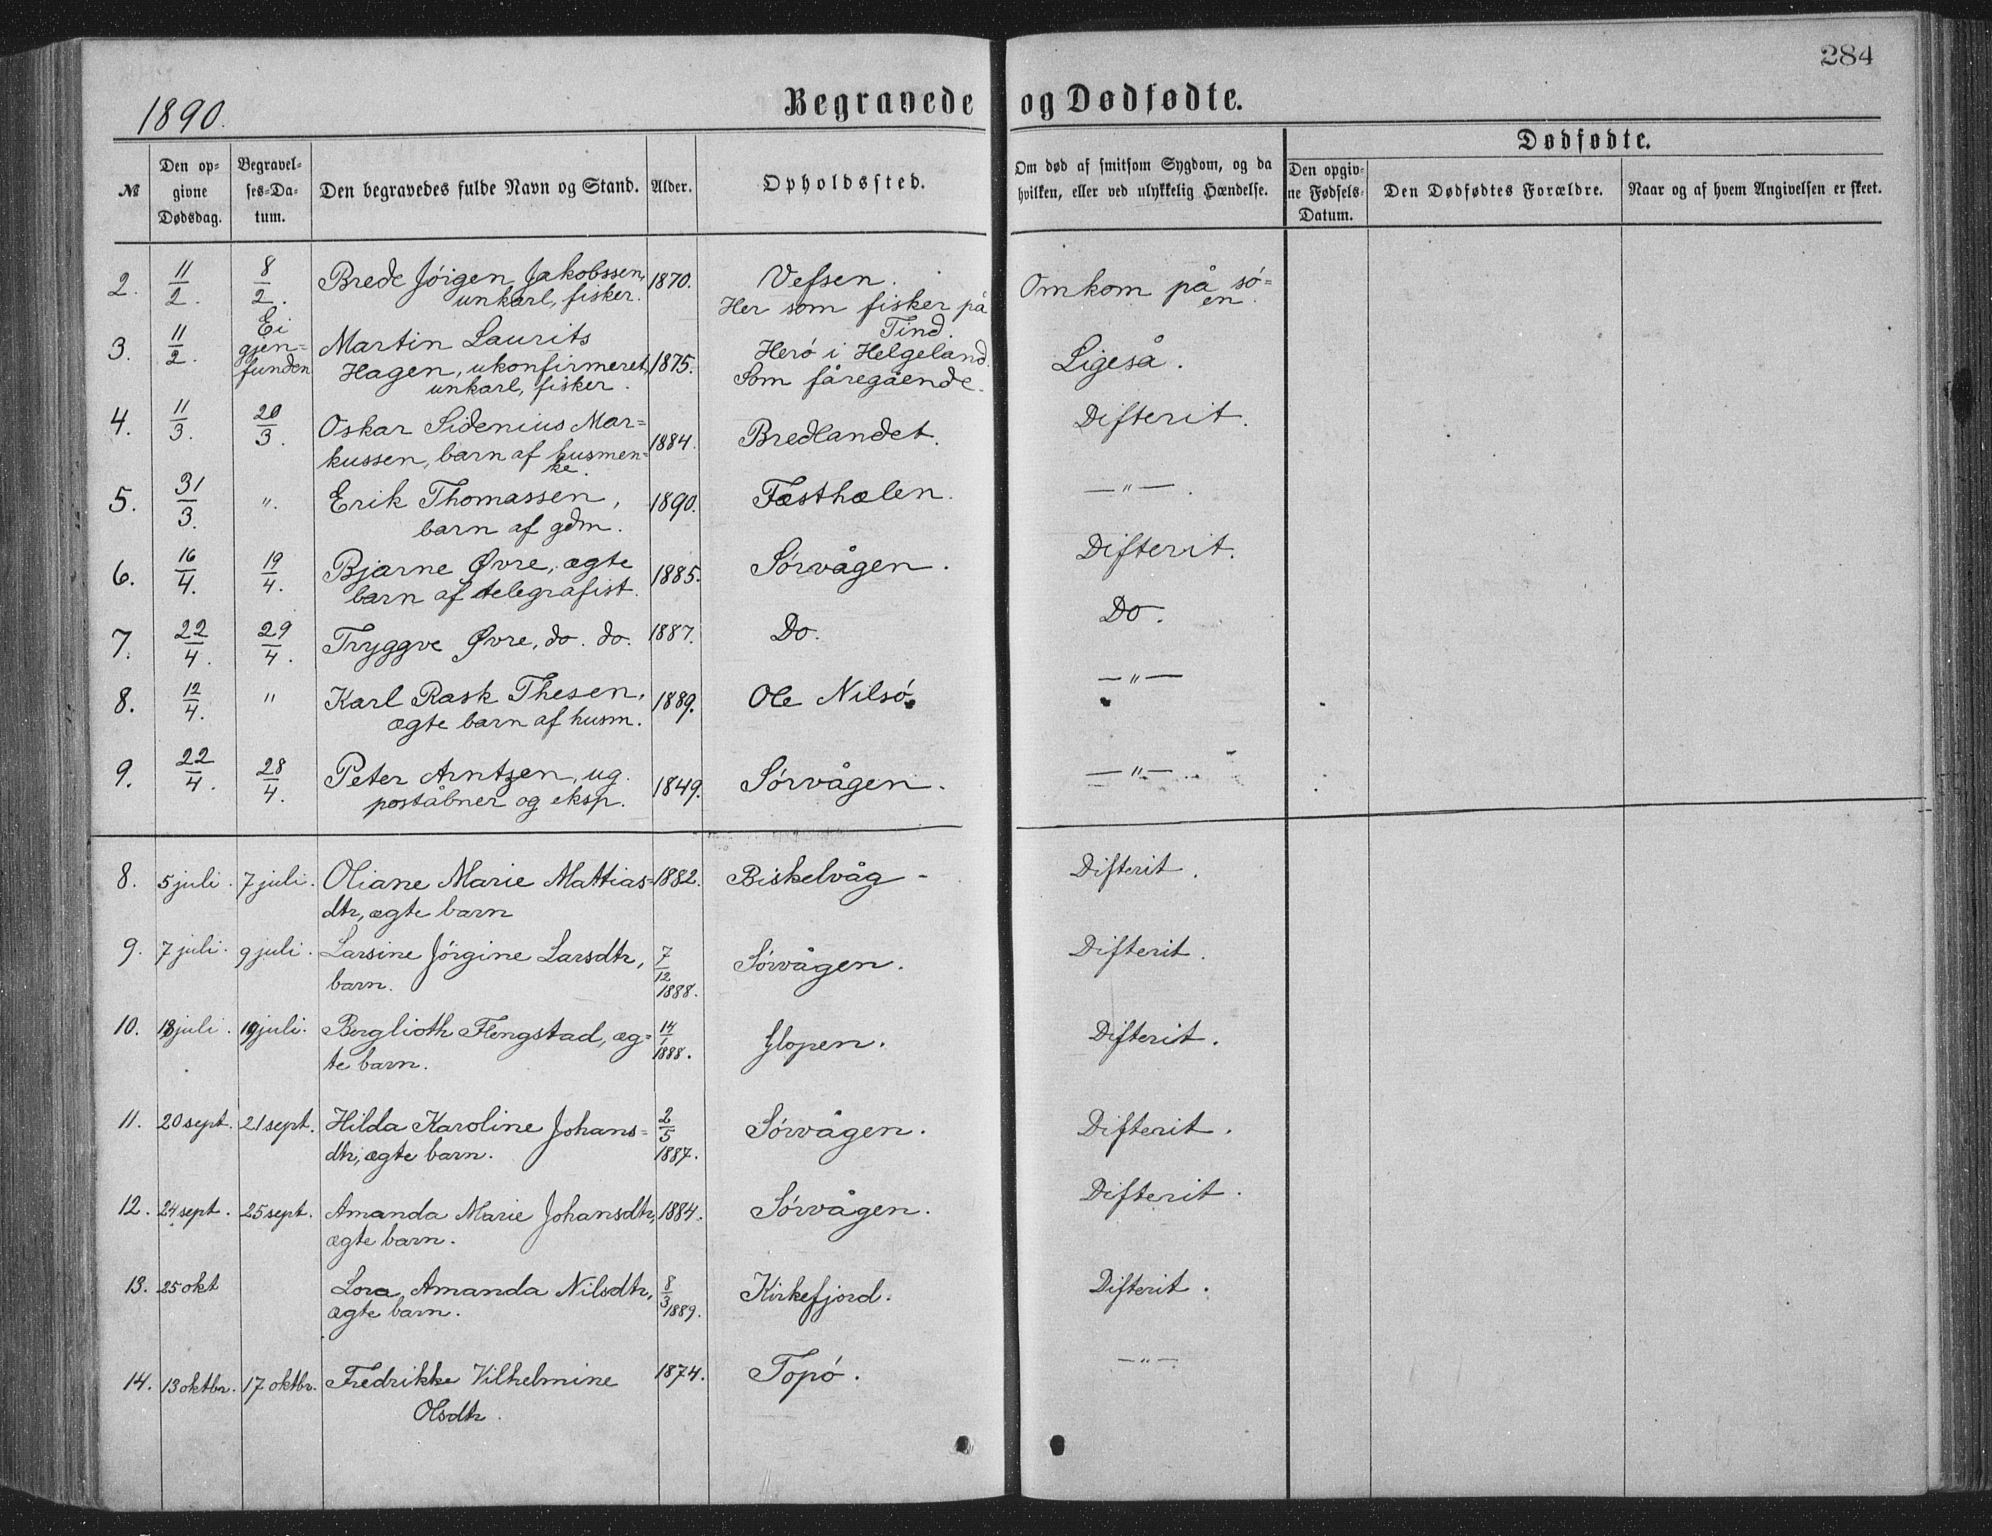 284
1890.
Begravede og Dødfødte.
Dødfødte.
№
Den op-
givne
Dødsdag.
Begravel-
ses-Da-
tum.
Den begravedes fulde Navn og Stand.
Alder.
Opholdssted.
Om død af smitsom Sygdom, og da
hvilken, eller ved ulykkelig Hændelse.
Den opgiv-
ne Fødsels-
Datum.
Den Dødfødtes Forældre.
Naar og af hvem Angivelsen er skeet.
2. 11/2. 8/2. Brede Jörgen Jakobssen, 1870. Vefsen. Omkom på sö=
unkarl, fisker. Her som fisker på en.
Tind.
3. 11/2. Ei gjen=funden Martin Laurits Herö i Helgeland. Ligeså.
Hagen, ukonfirmeret, 1875. Som fåregående.
unkarl, fisker.
4. 11/3. 20/3. Oskar Sidenius Mar= 1884. Bredlandet. Difterit.
kussen, barn af husmen=
ke.
5. 31/3. " Erik Thomassen, 1890. Fæsthælen. —"—.
barn af gdm.
6. 16/4. 19/4. Bjarne Øvre, ægte 1885. Sörvågen. Difterit.
barn af telegrafist.
7. 22/4. 29/4. Tryggve Øvre, do. do. 1887. Do. Do.
8. 12/4. " Karl Rask Thesen, 1889. Ole Nilsö. —"—
ægte barn af husm.
9. 22/4. 28/4. Peter Arntzen, ug. 1849. Sörvågen. —"—
poståbner og eksp.
8. 5 juli. 7 juli. Oliane Marie Mattias= 1882. Biskelvåg - Difterit.
dtr, ægte barn
9. 7 juli. 9 juli. Larsine Jörgine Larsdtr, 7/12 1888. Sörvågen. Difterit.
barn.
10. 18 juli. 19 juli. Berglioth Flengstad, æg= 14/1 1888. Glopen. Difterit.
te barn.
11. 20 sept. 21 sept. Hilda Karoline Johans= 2/5 1887. Sörvågen. Difterit.
dtr, ægte barn.
12. 24 sept. 25 sept. Amanda Marie Johansdtr, 1884. Sörvågen. Difterit.
ægte barn.
13. 25 okt Lora Amanda Nilsdtr, 8/3 1889. Kirkefjord. Difterit.
ægte barn.
14. 13 oktbr. 17 oktbr. Fredrikke Vilhelmine 1874. Topö. —"—
Olsdtr.